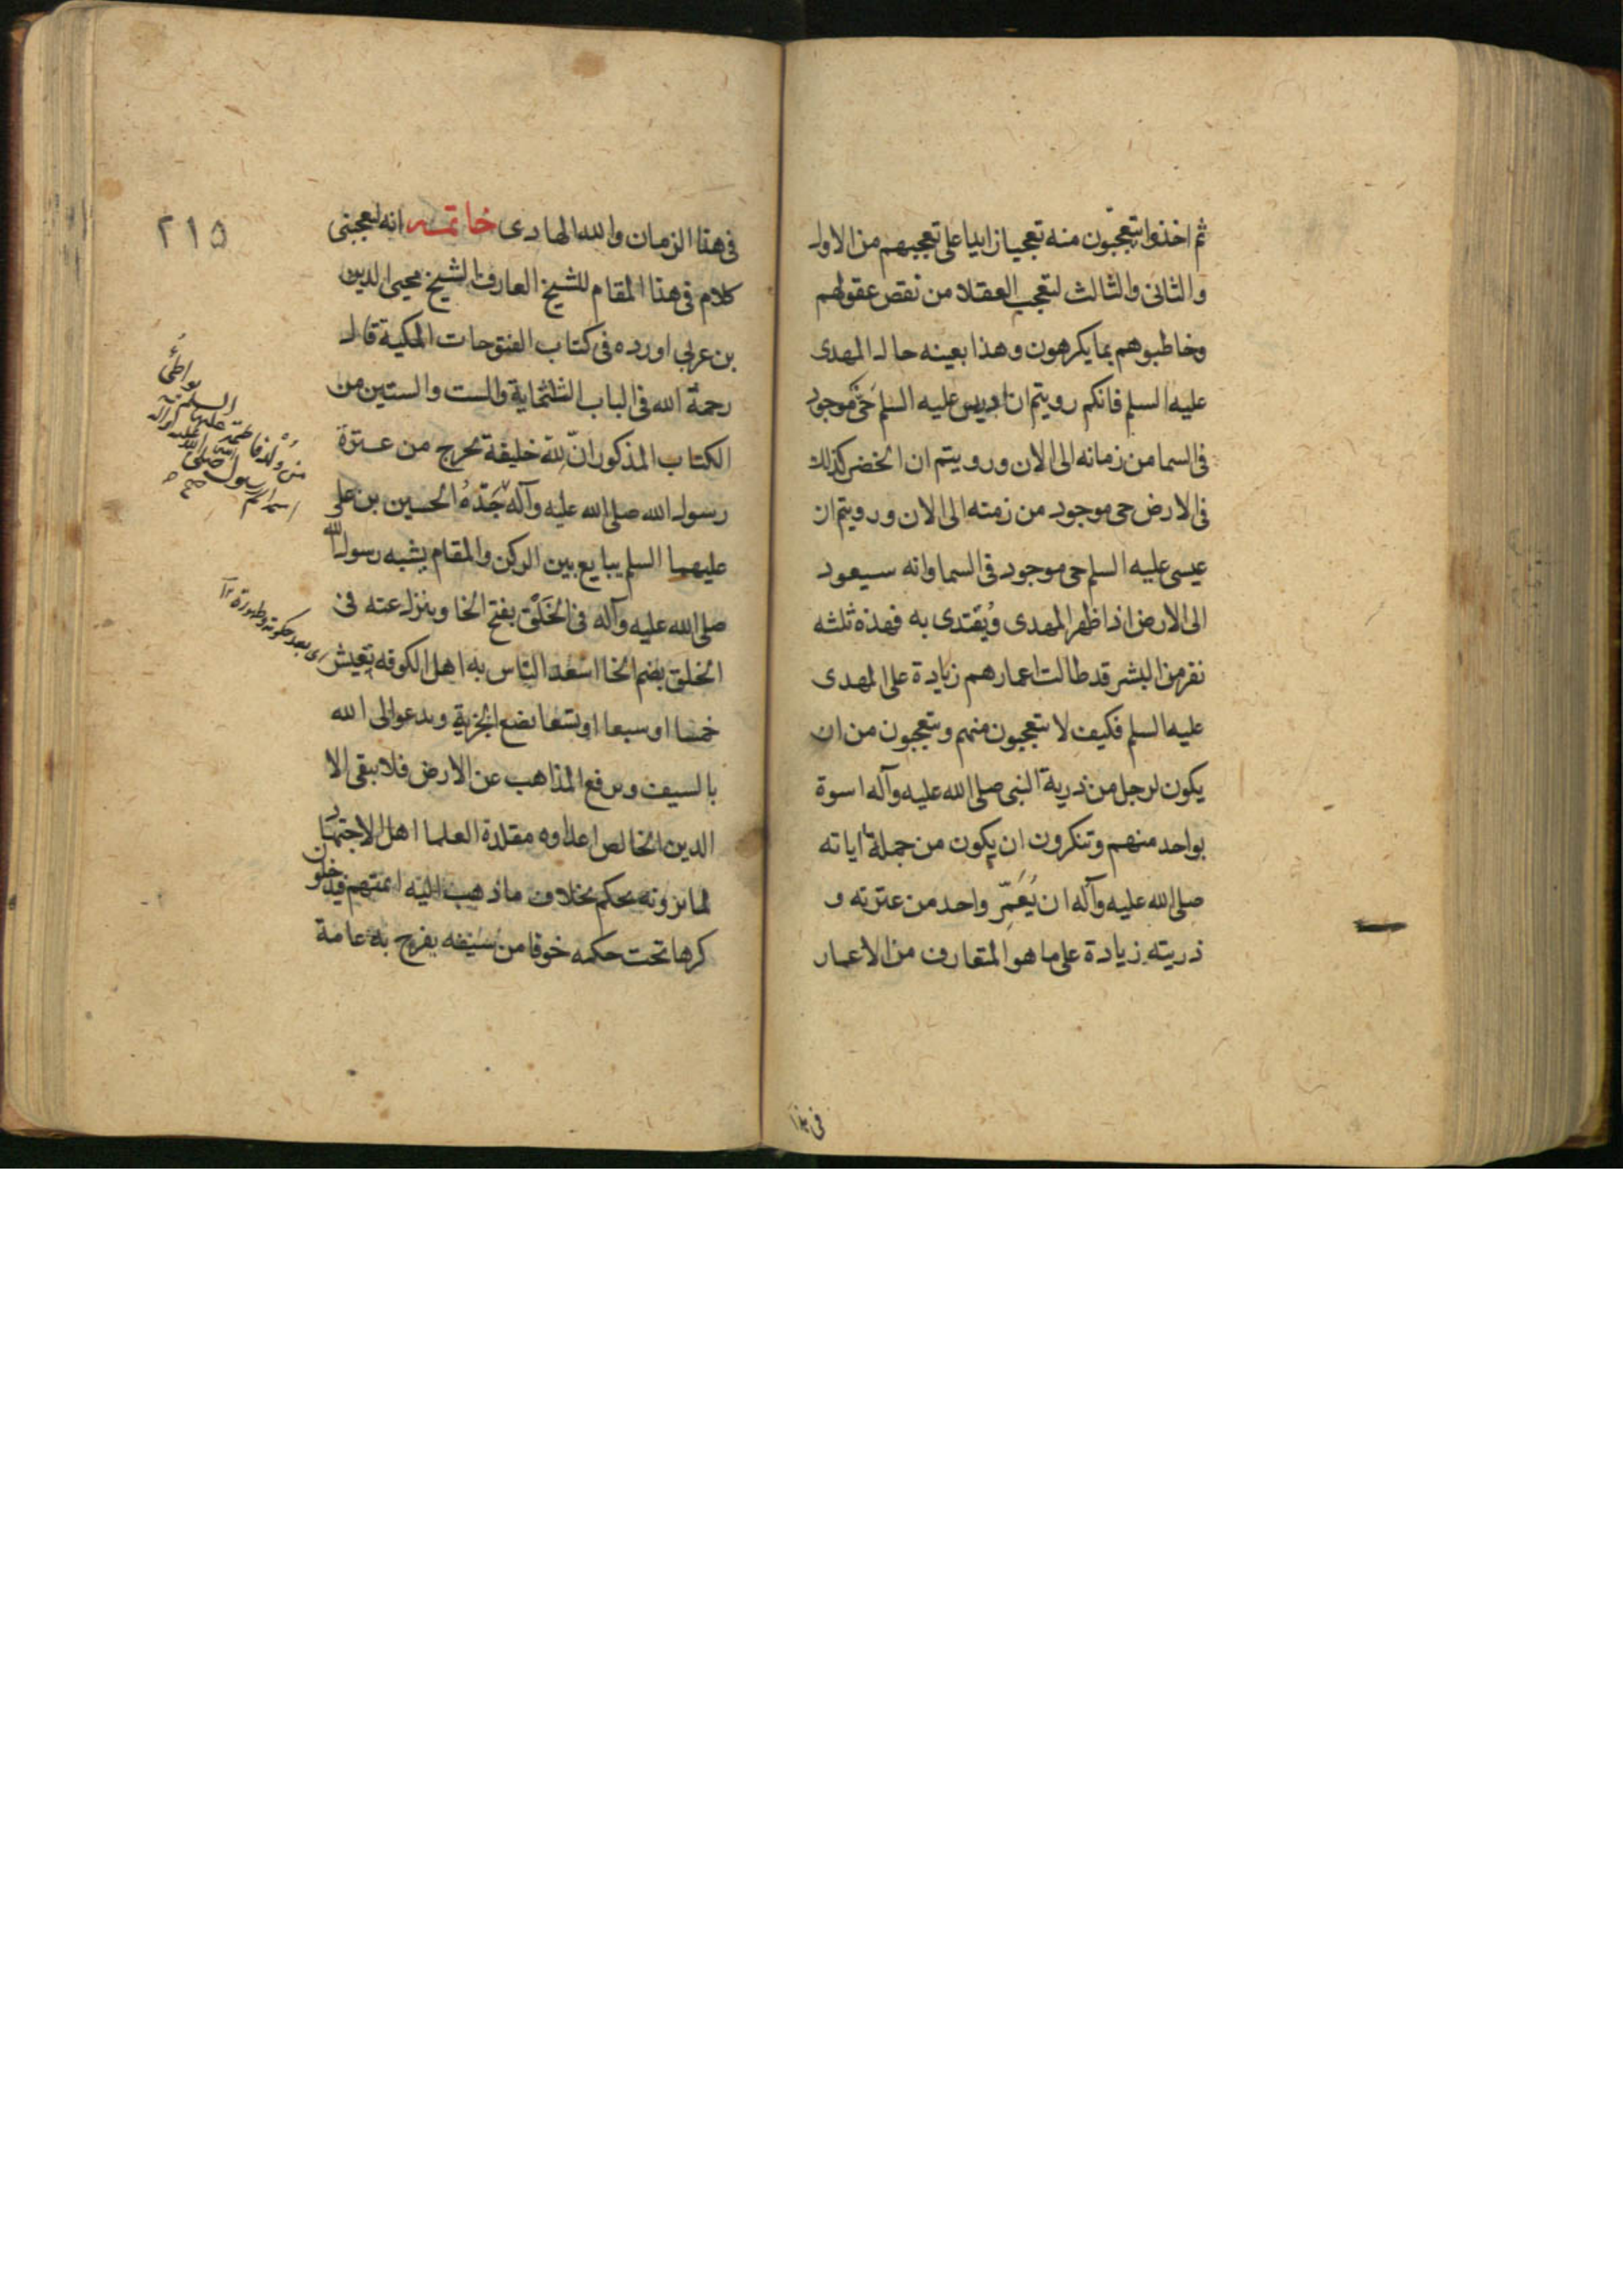 ثم اخذوا يتعجبون منه تعجبا زايدا على تعجبهم من الاول
والثانى والثالث لتعجب العقلا من نقص عقولهم
وخاطبوهم بما يكرهون وهذا بعينه حال المهدى
عليه السلم فانكم رويتم ان ادريس عليه السلم حَىٌّ موجود
فى السما من زمانه الى الان ورويتم ان الخضر كذلك
فى الارض حى موجود من زمنه الى الان ورويتم ان
عيسى عليه السلم حى موجود فى السما وانه سيعود
الى الارض اذا ظهر المهدى ويُقتدى به فهذه ثلثه
نفر من البشر قد طالت اعمارهم زيادة على المهدى
عليه السلم فكيف لا تتعجبون منهم وتتعجبون من ان
يكون لرجل من ذرية النبى صلى الله عليه وآله اسوة
بواحد منهم وتنكرون ان يكون من جملة اياته
صلى الله عليه وآله ان يُعَمِّر واحد من عترته و
ذريته زيادة على ما هو المتعارف من الاعمار
فى هذا
٢١٥
فى هذا الزمان والله الهادى خاتمه انه لعجبنى
كلام فى هذا المقام للشيخ العارف الشيخ محيى الدين
بن عربى اورده فى كتاب الفتوحات المكية قال
رحمة الله فى الباب الثلثماية والست والستين من
الكتاب المذكور انّ لله خليفة يخرج من عترة
رسول الله صلى الله عليه وآله جَدّهُ الحسين بن على
عليهما السلم يبايع بين الركن والمقام يشبه رسول الله
صلى الله عليه وآله فى الخَلْق بفتح الخا وينزل عنه فى
الخلق بضم الخا اسعد الناس به اهل الكوفه يعيش
خمسا او سبعا او تسعا يضع الجزية ويدعوا الى الله
بالسيف ويرفع المذاهب عن الارض فلا يبقى الا
الدين الخالص اعداوه مقلدة العلما اهل الاجتهاد
لما يرونه يحكم بخلاف ما ذهب اليه ائمتهم فيدخلون
كرها تحت حكمه خوفا من سيفه يفرح به عامة
من وُلد فاطمة عليها السلم يواطئ
اسمه اسم رسول الله صلى الله عليه وآله
اى بعد حكومته وظهوره